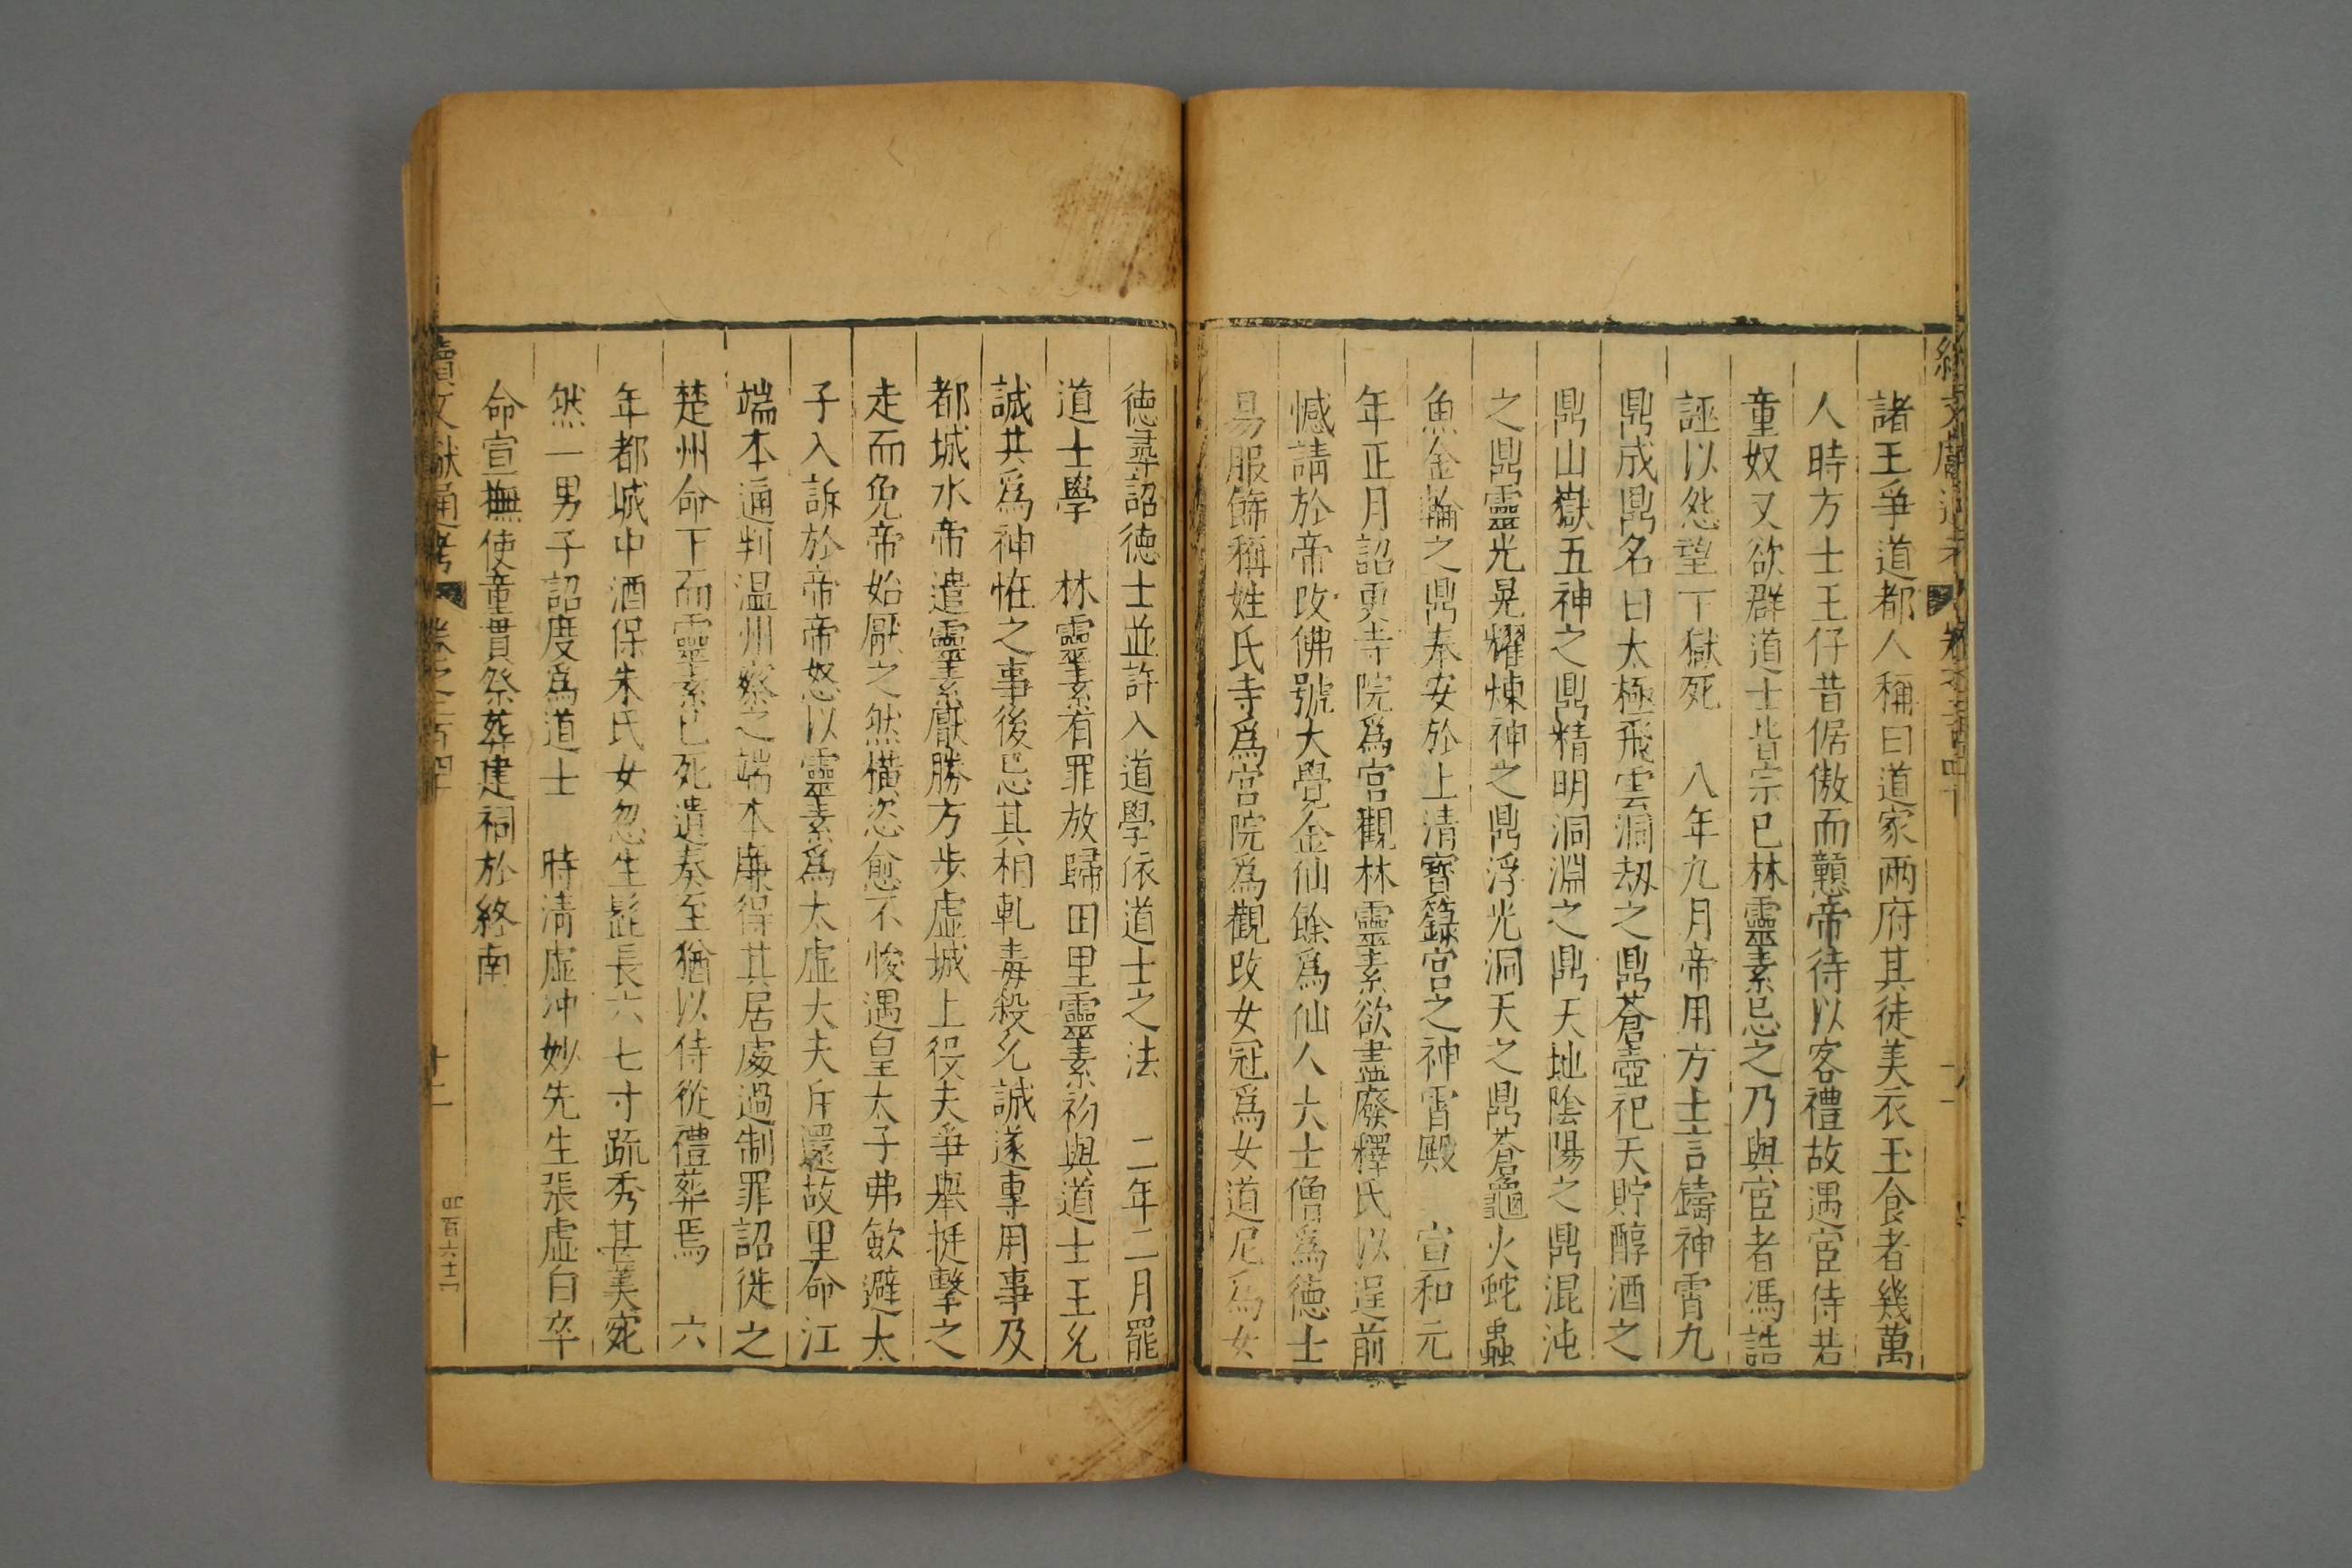 諸王爭道都人稱曰道家兩府其徒美衣玉食者幾萬
人時方士王仔昔倨傲而戇帝待以客禮故遇宦侍若
童奴又欲群道士皆宗已林靈素忌之乃與宦者馮誥
誣以怨望下獄死 八年九月帝用方士言鑄神霄九
鼎成鼎名曰太極飛雲洞劫之鼎蒼壺祀天貯醇酒之
鼎山嶽五神之鼎精明洞淵之鼎天地陰陽之鼎混沌
之鼎靈光晃耀煉神之鼎浮光洞天之鼎蒼龜火蛇蟲
魚金輪之鼎奉安於上清寶籙宮之神霄殿 宣和元
年正月詔更寺院爲宮觀林靈素欲盡廢釋氏以逞前
憾請於帝改佛號大覺金仙餘爲仙人大士僧爲德士
易服飾稱姓氏寺爲宮院爲觀改女冠爲女道尼爲女
德尋詔德士並許入道學依道士之法 二年二月罷
道士學 林靈素有罪放歸田里靈素初與道士王允
誠共爲神恠之事後忌其相軋毒殺允誠遂專用事及
都城水帝遣靈素厭勝方步虛城上役夫爭舉挺擊之
走而免帝始厭之然橫恣愈不悛遇皇太子弗斂避太
子入訴於帝帝怒以靈素爲太虛大夫斥還故里命江
端本通判温州察之端本廉得其居處過制罪詔徙之
楚州命下而靈素已死遺奏至猶以侍從禮葬焉 六
年都城中酒保朱氏女忽生髭長六七寸疏秀甚美宛
然一男子詔度爲道士 時清虛冲妙先生張虛白卒
命宣撫使童貫祭葬建祠於終南
續文獻通考 卷之二百四十 十二